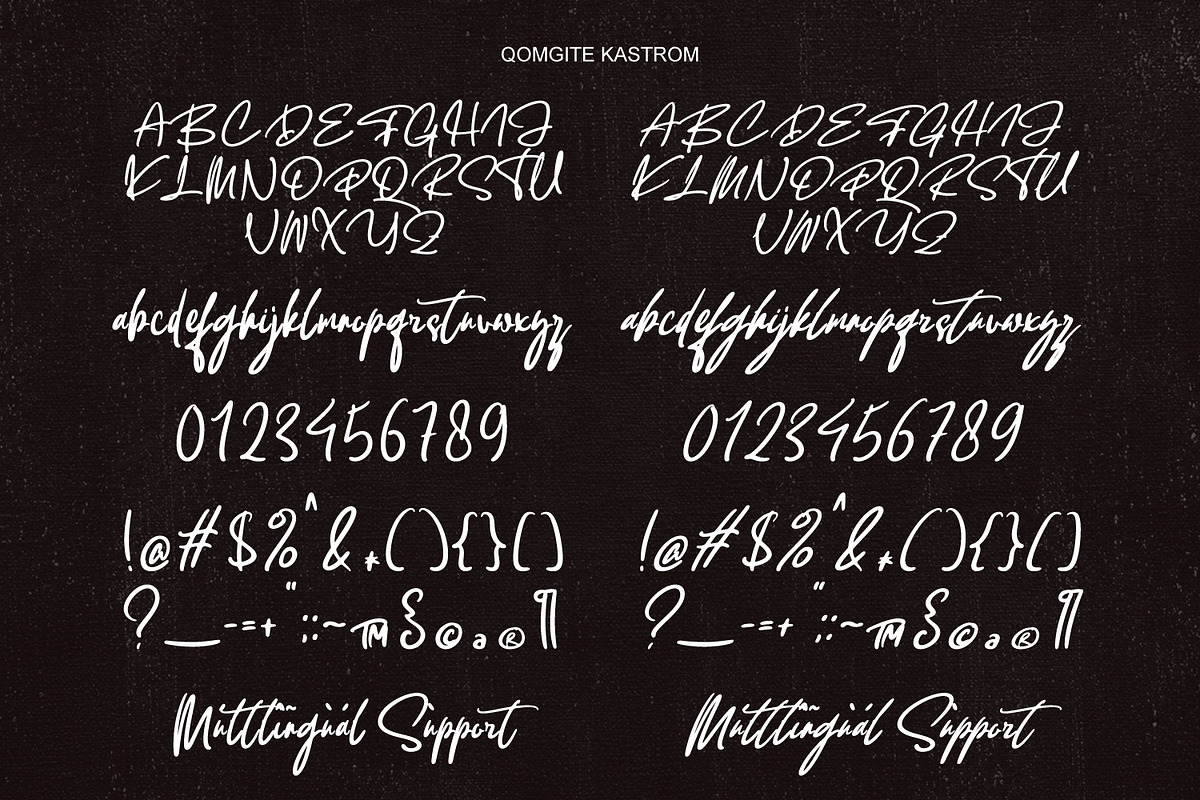 QOMGITE KASTROM
ABCDEFGHIJ ABCDEFGHIJ
KLMNOPQRSTU KLMNOPQRSTU
VWXYZ VWXYZ
abcdefghijklmnopqrstuvwxyz abcdefghijklmnopqrstuvwxyz
0123456789 0123456789
!@#$%^&*(){}[] !@#$%^&*(){}[]
?_-=+":;~™§©ª®¶ ?_-=+":;~™§©ª®¶
Support Support